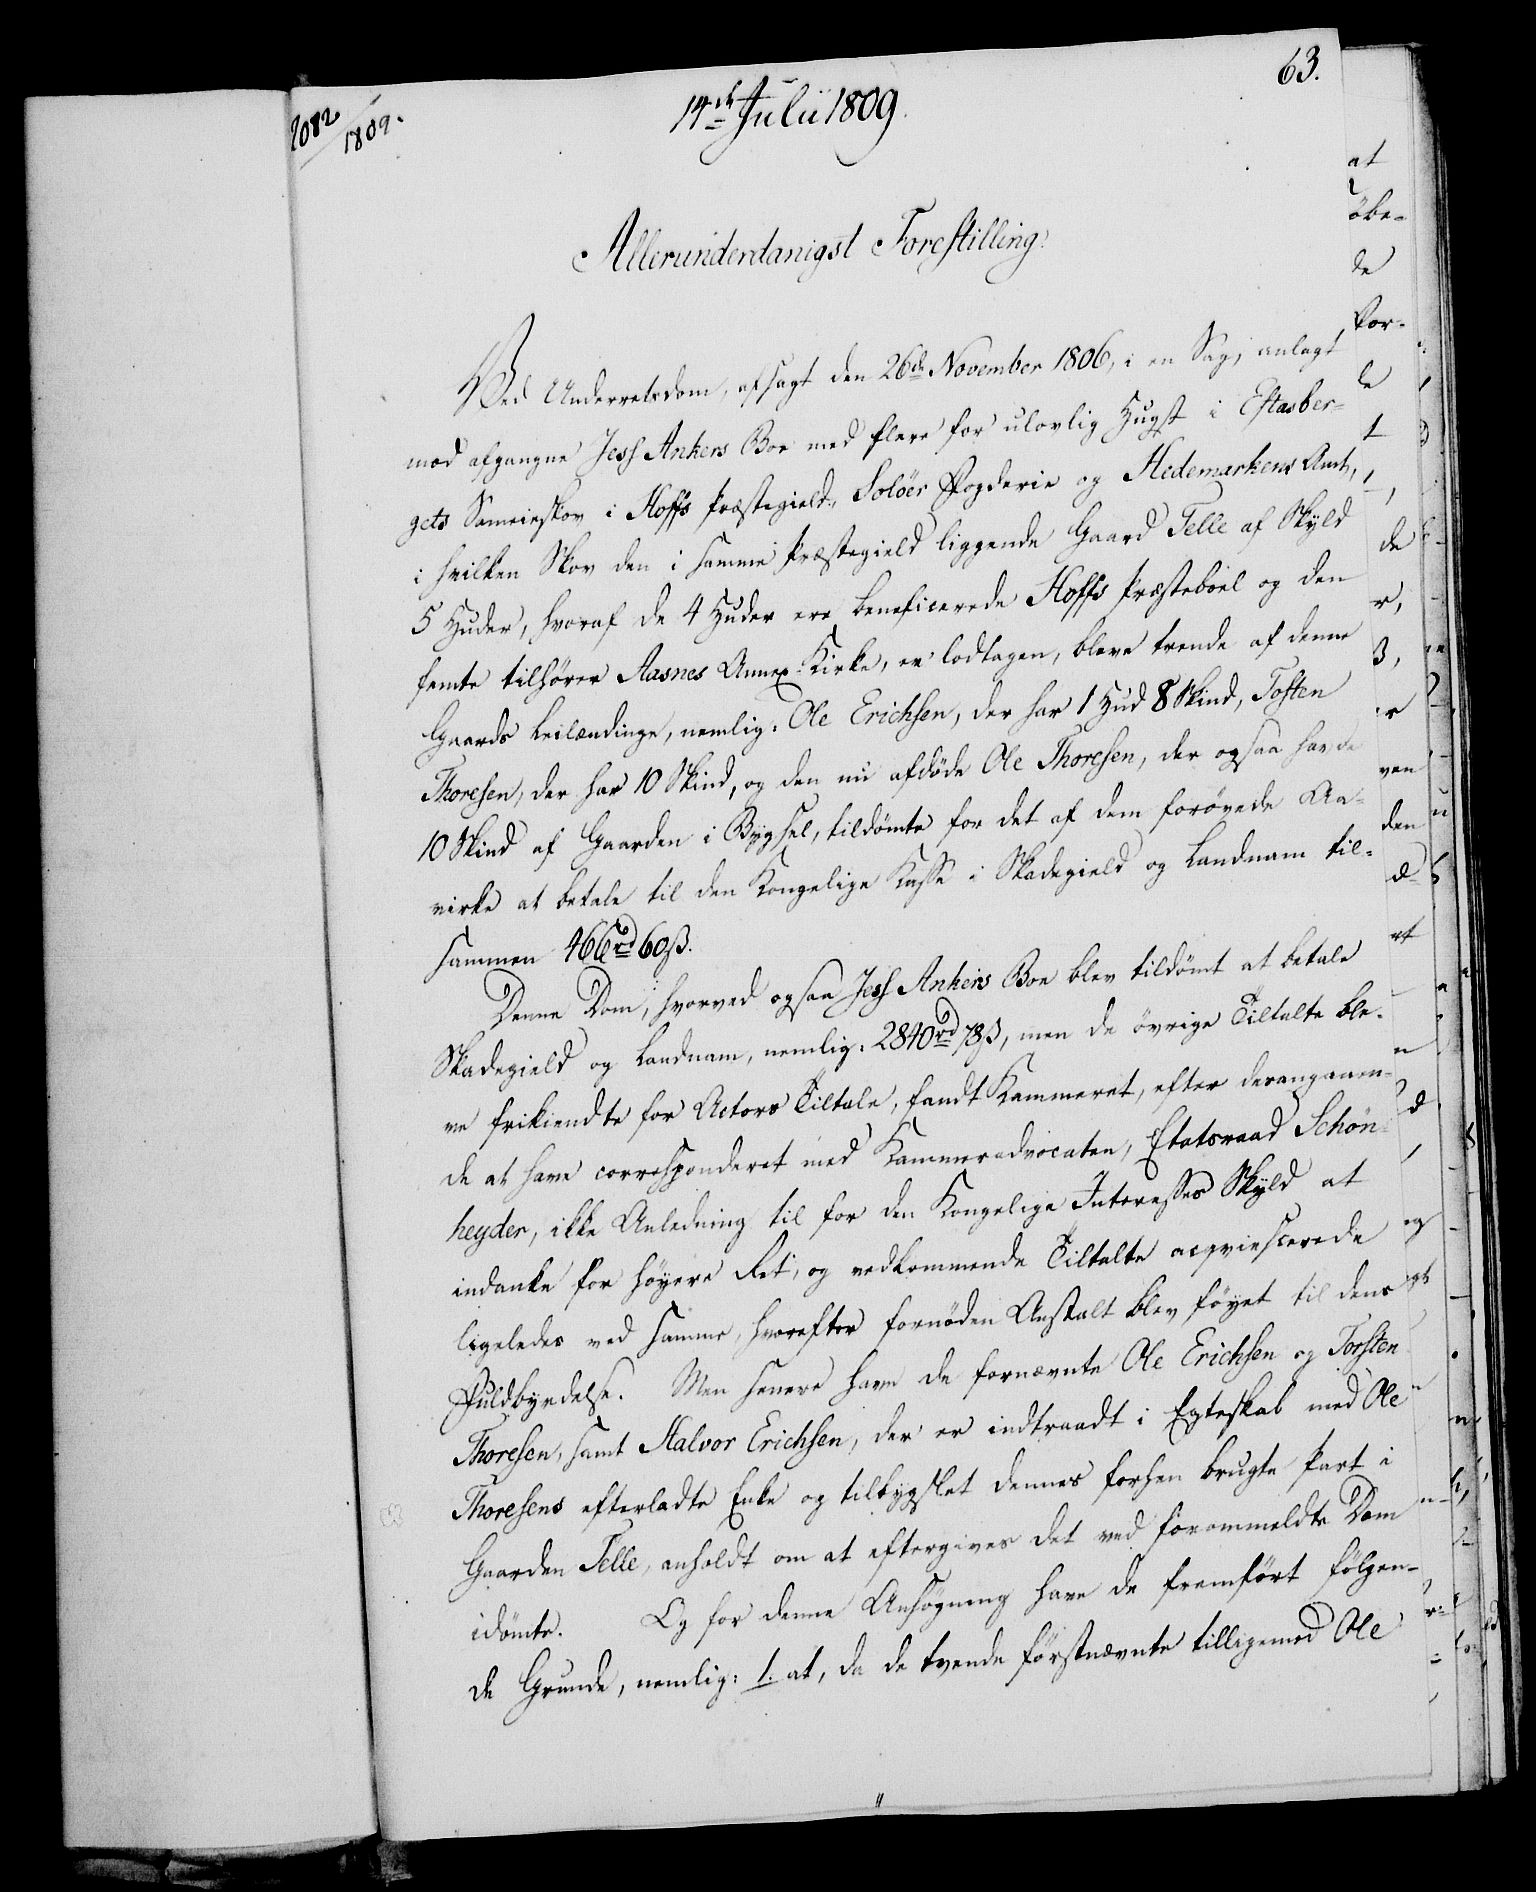 63.
2082/1809.
14de Julii 1809.
Allerunderdanigst Forestilling.
Ved Underretsdom, afsagt den 26de November 1806, i en Sag, anlagt
mod afgangne Jess Ankers Boe med flere for ulovlig Hugst i Eftasber-
gets Sameieskov i Hoffs Præstegield, Solöer Fogderie og Hedemarkens Amt,
i hvilken Skov den i samme Præstegield liggende Gaard Telle af Skyld
5 Huder, hvoraf de 4 Huder ere beneficerede Hoffs Præsteboel og den
femte tilhører Aasnes Annex-Kirke, er lodtagen, bleve trende af denne
Gaards Leilændinge, nemlig: Ole Erichsen, der har 1 Hud 8 Skind, Tosten
Thoresen, der har 10 Skind, og den nu afdöde Ole Thoresen, der ogsaa havde
10 Skind af Gaarden i Bygsel, tildömte for det af dem forövede Aa-
virke at betale til den Kongelige Kasse i Skadegield og Landnam til-
sammen 466rd 60ß.
Denne Dom, hvorved ogsaa Jess Ankers Boe blev tildömt at betale
Skadegield og Landnam, nemlig: 2840rd 78ß, men de övrige Tiltalte ble-
ve frikiendte for Actors Tiltale, fandt Kammeret, efter derangaaen-
de at have corresponderet med Kammeradvocaten, Etatsraad Schön-
heyder, ikke Anledning til for den Kongelige Interesses Skyld at
indanke for höyere Ret, og vedkommende Tiltalte acqviescerede
ligeledes ved samme, hvorefter fornöden Anstalt blev föyet til dens
Fuldbyrdelse. Men senere have de fornævnte Ole Erichsen og Torsten
Thoresen, samt Halvor Erichsen, der er indtraadt i Egteskab med Ole
Thoresens efterladte Enke og tilbygslet dennes forhen brugte Part i
Gaarden Telle, anholdt om at eftergives det ved forommeldte Dom
idömte. Og for denne Ansögning have de fremfört fölgen-
de Grunde, nemlig: 1. at, da de tvende förstnævnte tilligemed Ole